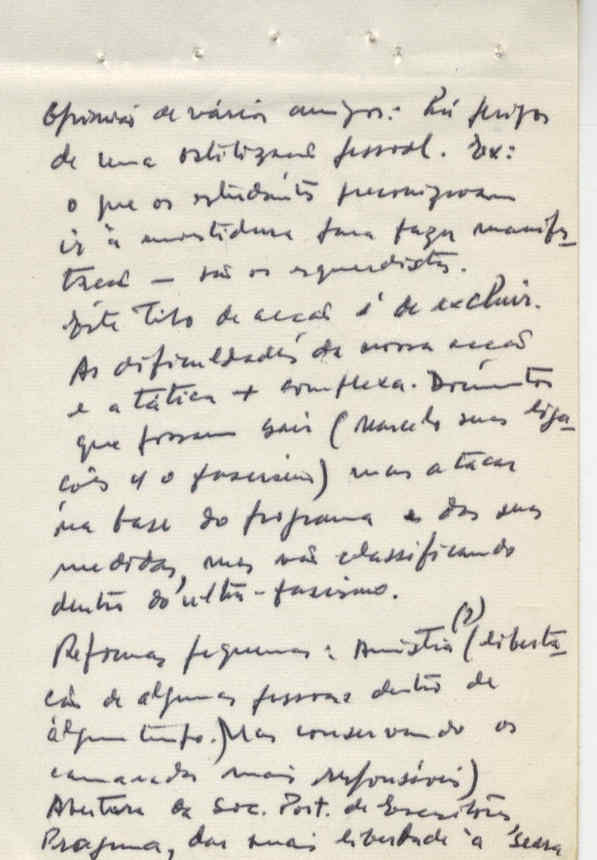 Opinião de vários amigos: há perigos
de uma estilização pessoal. Ex:
o que os estudantes preconizavam
ir à investidura para fazer manifes-
tação — são os esquerdistas.
Este tipo de acção é de excluir.
As dificuldades da nossa acção
e a tática + complexa. Documentos
que possam sair (Marcelo suas liga-
ções c/ o fascismo) mas atacar
na base do programa e das suas
medidas, mas não classificando
dentro do ultra-fascismo.
Reformas pequenas: Amnistia (?) (liberta-
ção de algumas pessoas dentro de
algum tempo.) Mas conservando os
camaradas mais responsáveis)
Abertura da Soc. Port. de Escritores,
Pragma, dar mais liberdade à "Seara